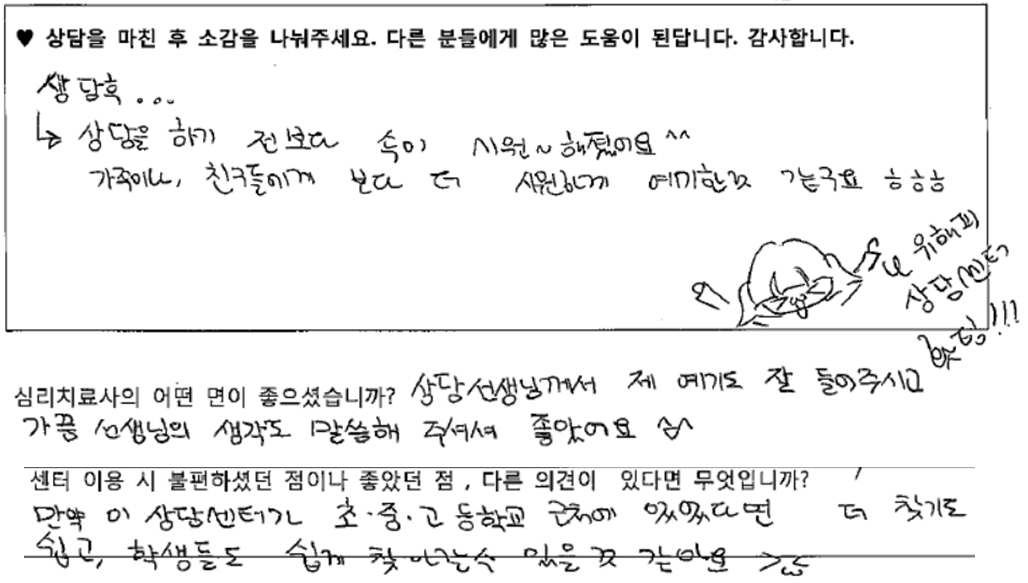 ♥ 상담을 마친 후 소감을 나눠주세요. 다른 분들에게 많은 도움이 된답니다. 감사합니다.
상담후...
↳ 상담을 하기 전보다 속이 시원~해졌어요^^
가족이나, 친구들에게 보다 더 시원하게 얘기한것 같구요 ㅎㅎㅎ
위해피
상담센터
홧팅!!!
심리치료사의 어떤 면이 좋으셨습니까? 상담선생님께서 제 얘기도 잘 들어주시고
가끔 선생님의 생각도 말씀해 주셔서 좋았어요 ^^
센터 이용 시 불편하셨던 점이나 좋았던 점, 다른 의견이 있다면 무엇입니까?
만약 이 상담센터가 초·중·고 등학교 근처에 있었다면 더 찾기도
쉽고, 학생들도 쉽게 찾아갈수 있을것 같아요